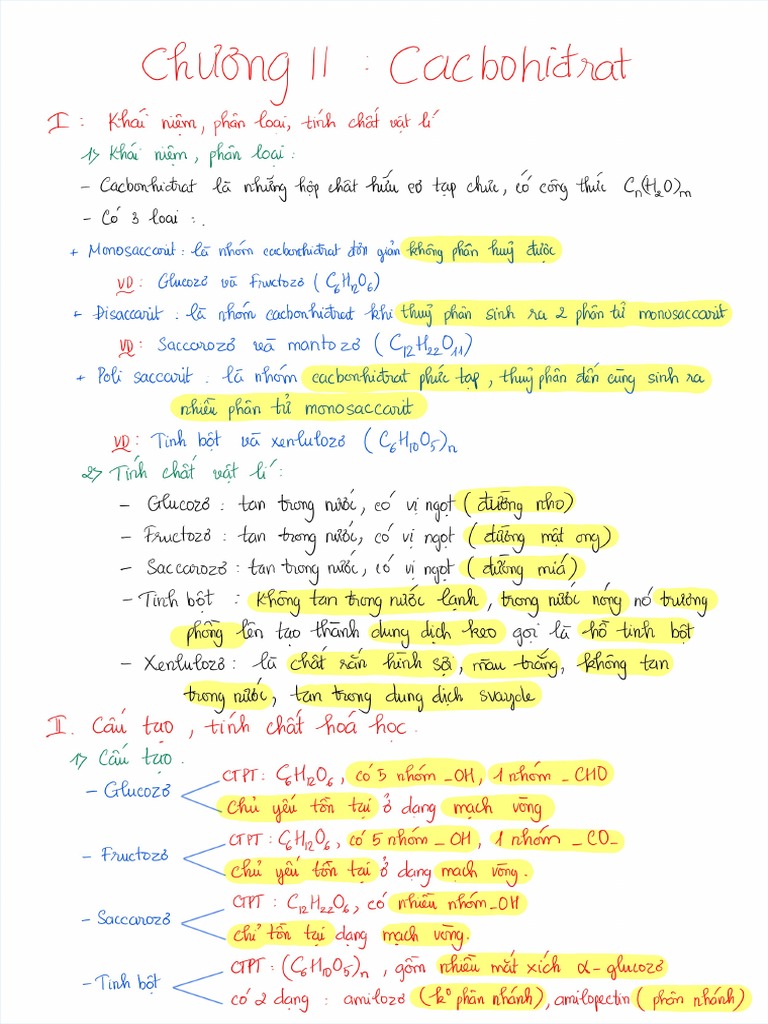 Chương II : Cacbohiđrat
I : Khái niệm, phân loại, tính chất vật lí
1> Khái niệm, phân loại :
- Cacbonhiđrat là những hợp chất hữu cơ tạp chức, có công thức Cn(H2O)m
- Có 3 loại :
+ Monosaccarit : là nhóm cacbonhiđrat đơn giản không phân huỷ được
VD : Glucozơ và Fructozơ ( C6H12O6)
+ Disaccarit : là nhóm cacbonhiđrat khi thuỷ phân sinh ra 2 phân tử monosaccarit
VD : Saccarozơ và mantozơ ( C12H22O11)
+ Poli saccarit : là nhóm cacbonhiđrat phức tạp, thuỷ phân đến cùng sinh ra
nhiều phân tử monosaccarit
VD : Tinh bột và xenlulozơ ( C6H10O5)n
2> Tính chất vật lí :
- Glucozơ : tan trong nước, có vị ngọt ( đường nho)
- Fructozơ : tan trong nước, có vị ngọt ( đường mật ong)
- Saccarozơ : tan trong nước, có vị ngọt ( đường miá)
- Tinh bột : không tan trong nước lạnh, trong nước nóng nó trương
phồng lên tạo thành dung dịch keo gọi là hồ tinh bột
- Xenlulozơ : là chất rắn hình sợi, màu trắng, không tan
trong nước, tan trong dung dịch svayde
II. Cấu tạo, tính chất hoá học.
1> Cấu tạo.
- Glucozơ
CTPT : C6H12O6, có 5 nhóm _OH, 1 nhóm _CHO
chủ yếu tồn tại ở dạng mạch vòng
- Fructozơ
CTPT : C6H12O6, có 5 nhóm _ OH, 1 nhóm _CO_
chủ yếu tồn tại ở dạng mạch vòng.
- Saccarozơ
CTPT : C12H22O6, có nhiều nhóm_OH
chỉ tồn tại dạng mạch vòng.
- Tinh bột
CTPT : (C6H10O5)n, gồm nhiều mắt xích α-glucozơ
có 2 dạng : amilozơ (k° phân nhánh), amilopectin ( phân nhánh)